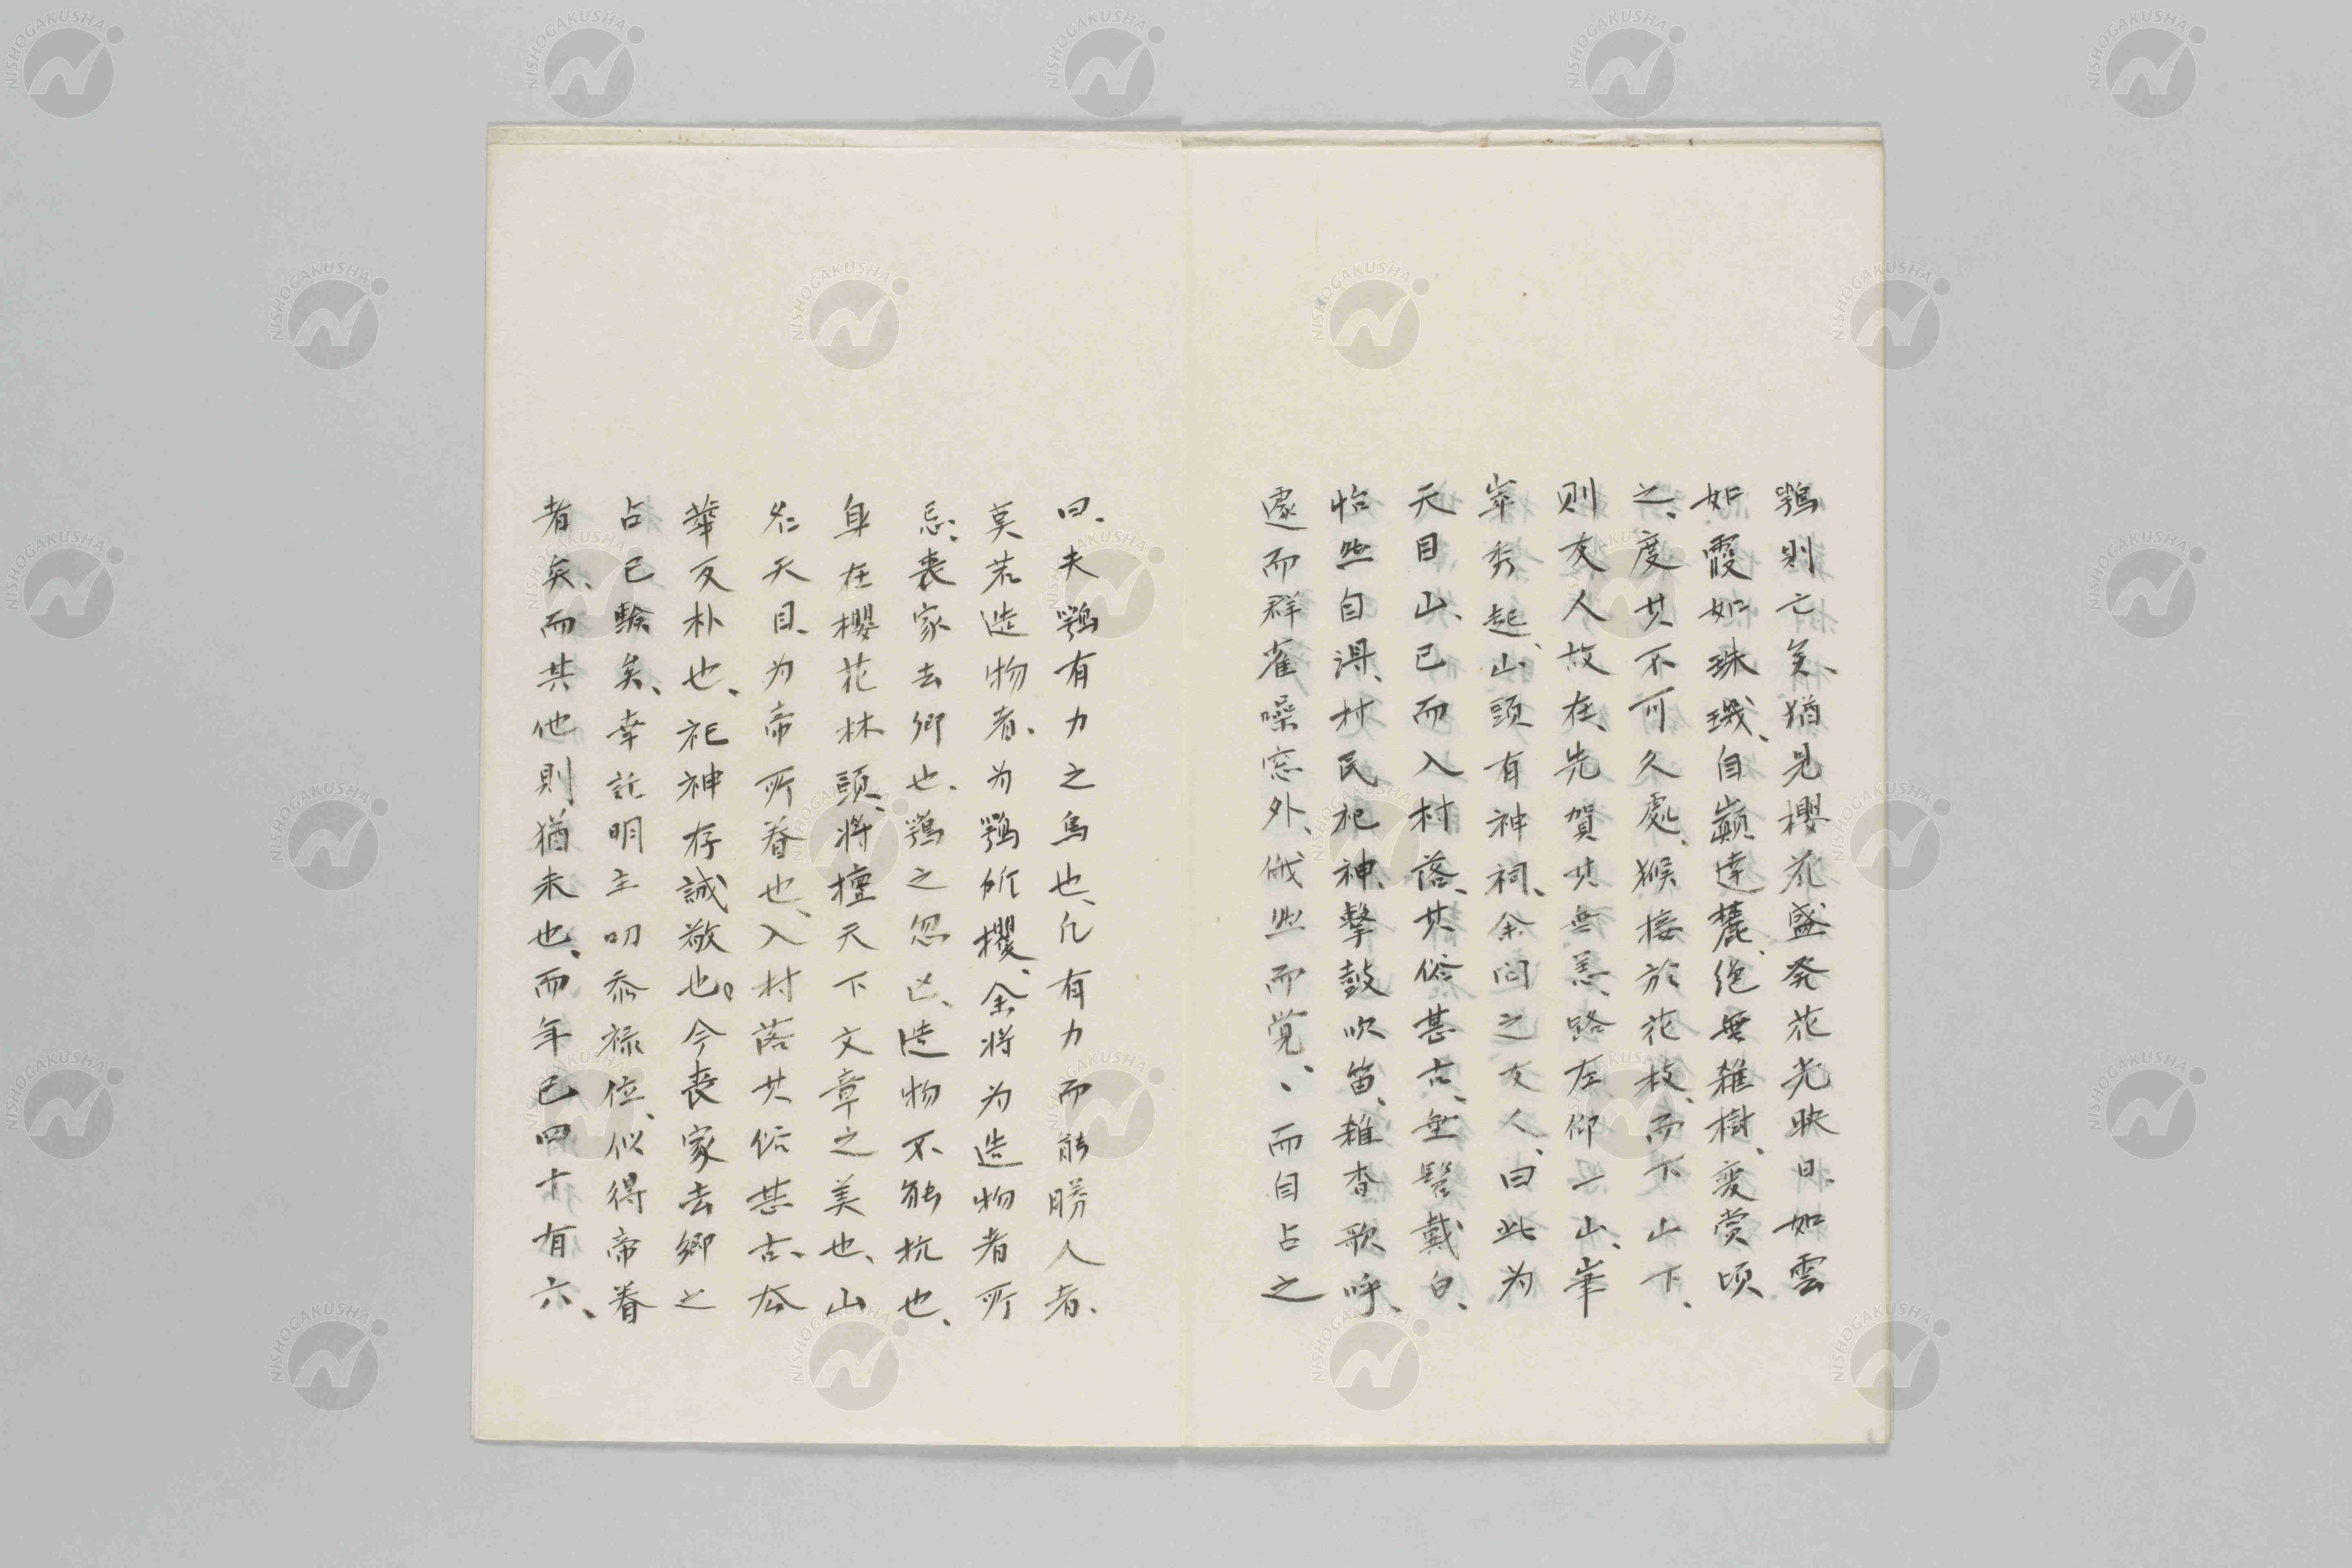 鶚則亡矣、猶見櫻花盛発花光映日、如雲
如霞如珠璣、自巔達麓、絶無雑樹、変賞頃
之、度其不可久處、猴接於花枝、而下山下、
則友人故在、先賀其無恙、路左仰一山、峯
峯秀起、山頭有神祠、余問之友人、曰此為
天目山、已而入村落、其俗甚古、垂髫戴白、
怡然自得、村民祀神、撃鼓吹笛、雑沓歌呼、
遽而群雀噪窓外、俄然而覚、、而自占之
曰、夫鶚有力之鳥也、凡有力而能勝人者、
莫若造物者、为鶚所攫、余将为造物者所
忌、喪家去郷也、鶚之忽亡、造物不能抗也、
身在櫻花林頭、将擅天下文章之美也、山
名天目、为帝所眷也、入村落其俗甚古、去
華反朴也、祀神存誠敬也。今喪家去郷之
占已験矣、幸託明主叨忝禄位、似得帝眷
者矣、而其他則猶未也、而年已四十有六、
NISHOGAKUSHA